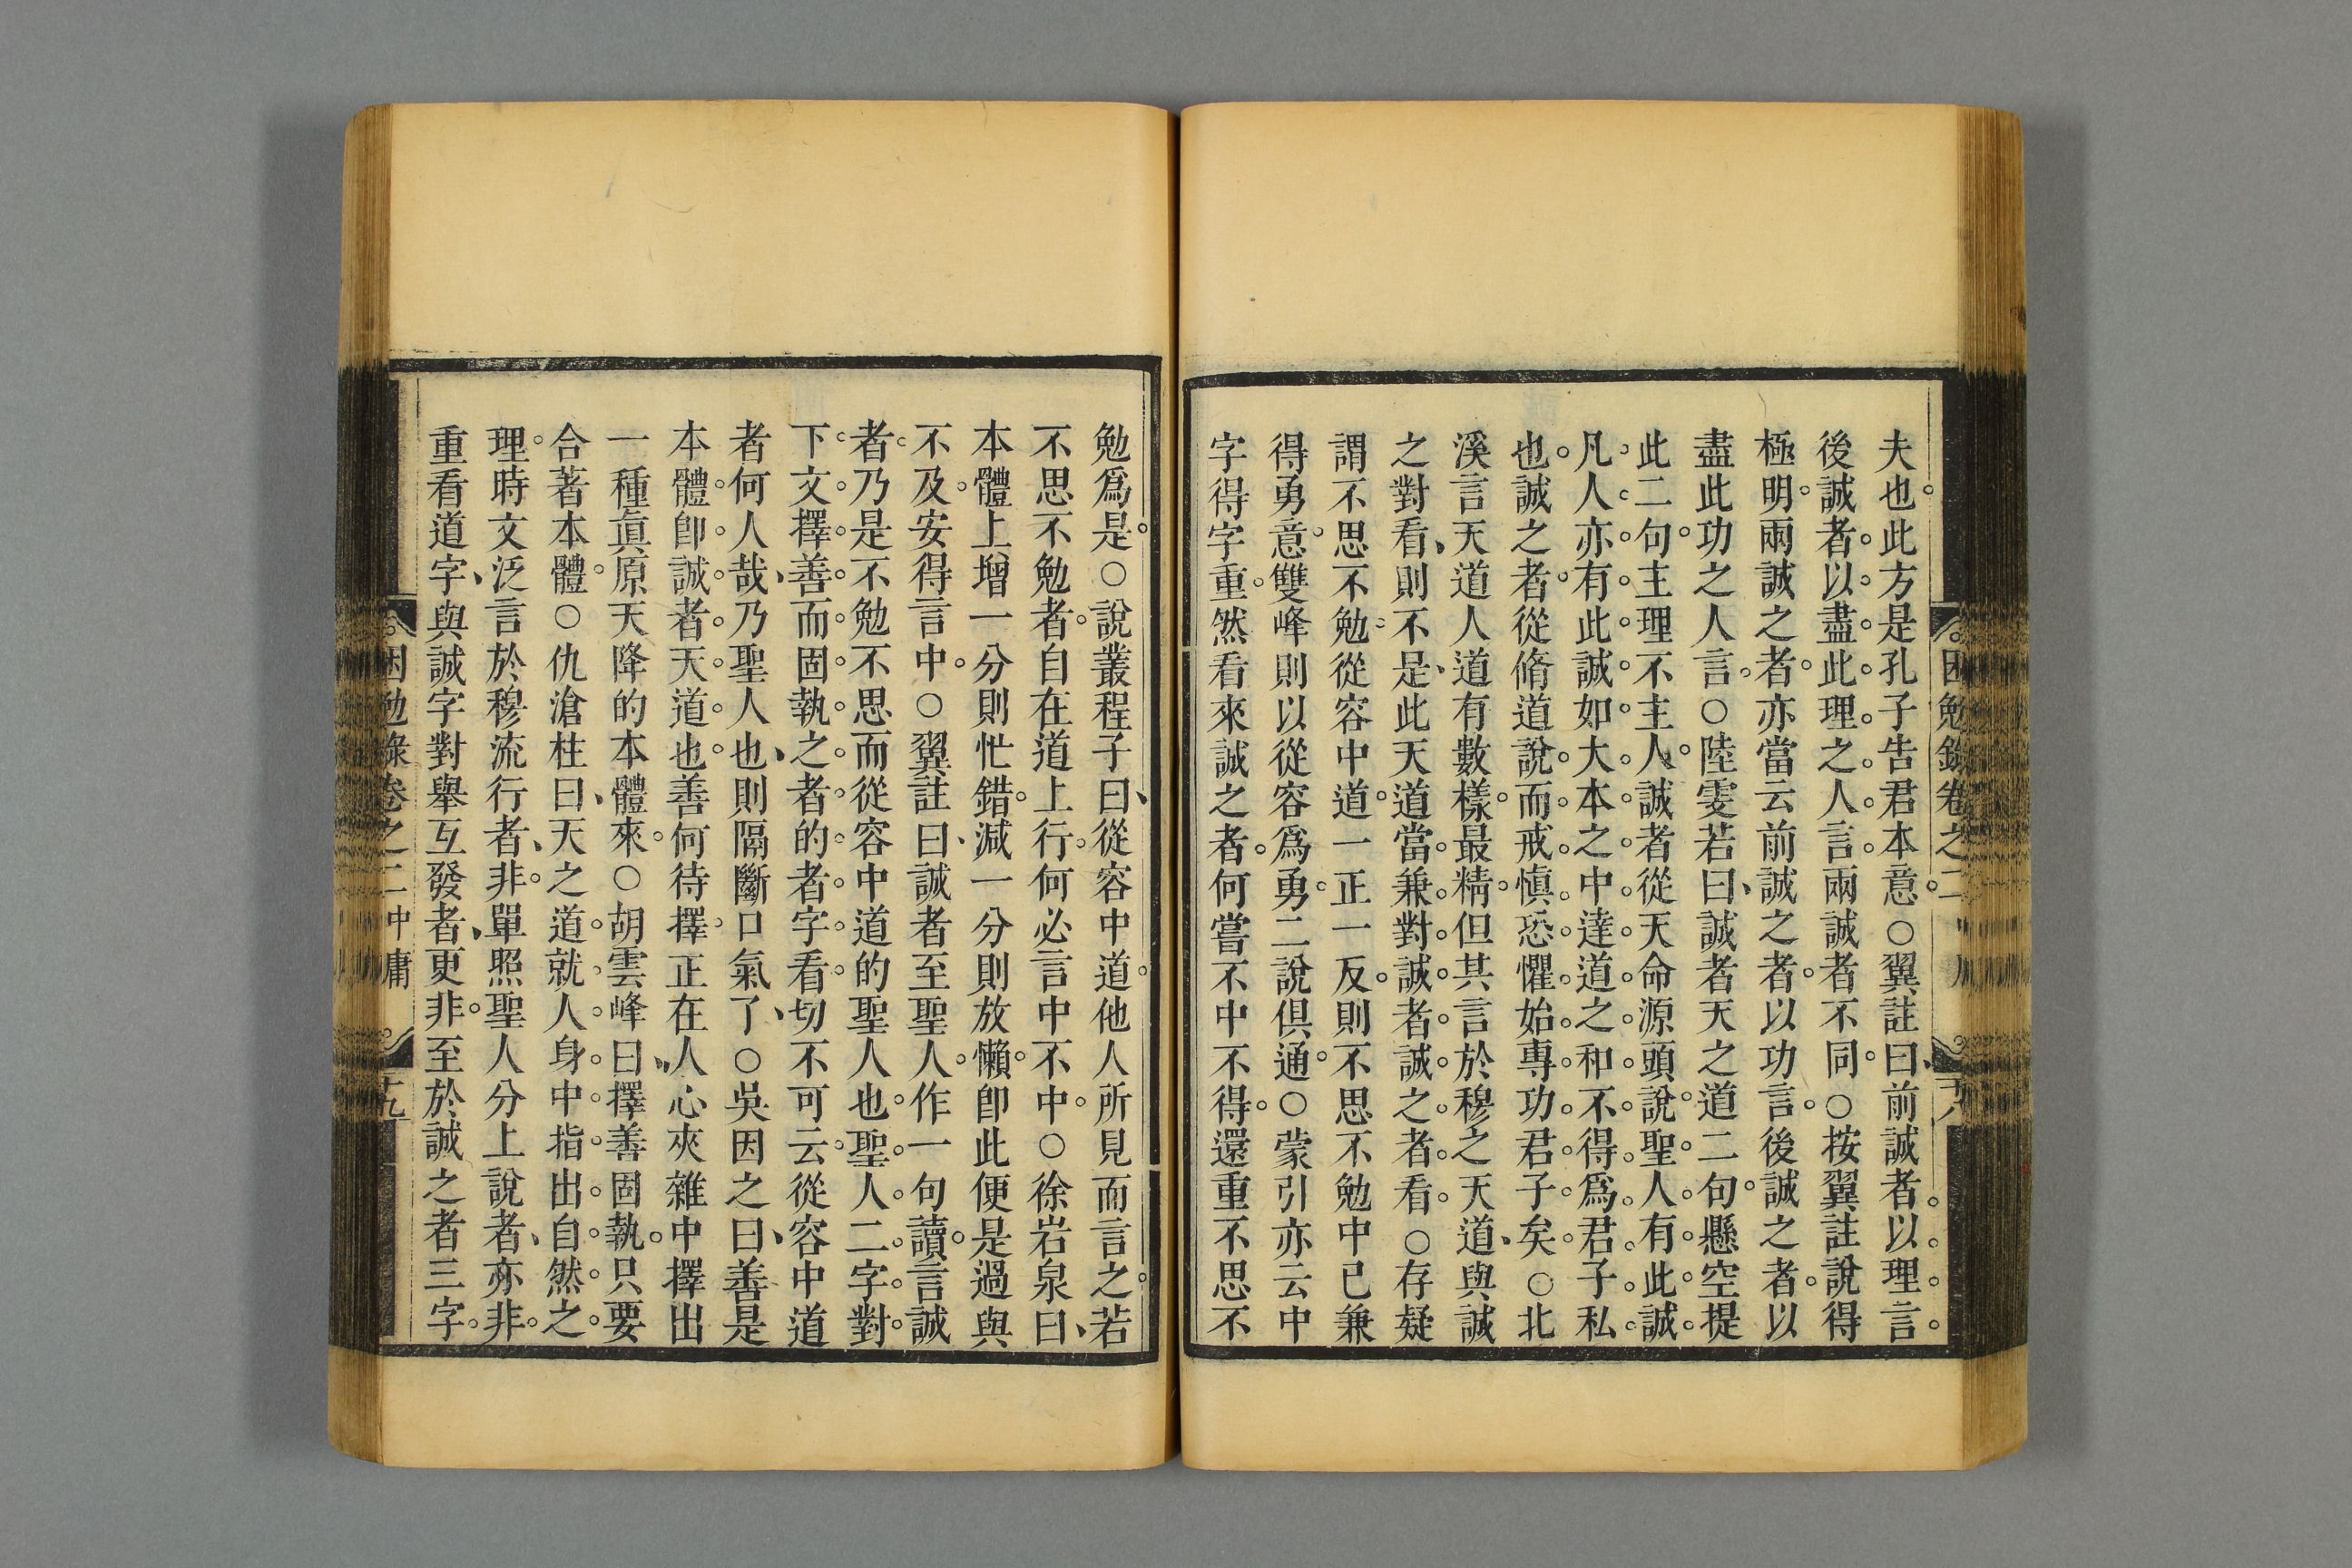 困勉錄卷之二
夫也此方是孔子告君本意○翼註曰前誠者以理言
後誠者以盡此理之人言兩誠者不同○按翼註說得
極明兩誠之者亦當云前誠之者以功言後誠之者以
盡此功之人言○陸雯若曰誠者天之道二句懸空提
此二句主理不主人誠者從天命源頭說聖人有此誠
凡人亦有此誠如大本之中達道之和不得爲君子私
也誠之者從脩道說而戒慎恐懼始專功君子矣○北
溪言天道人道有數樣最精但其言於穆之天道與誠
之對看則不是此天道當兼對誠者誠之者看○存疑
謂不思不勉從容中道一正一反則不思不勉中已兼
得勇意雙峰則以從容爲勇二說俱通○蒙引亦云中
字得字重然看來誠之者何嘗不中不得還重不思不
勉爲是○說叢程子曰從容中道他人所見而言之若
不思不勉者自在道上行何必言中不中○徐岩泉曰
本體上增一分則忙錯減一分則放懶卽此便是過與
不及安得言中○翼註曰誠者至聖人作一句讀言誠
者乃是不勉不思而從容中道的聖人也聖人二字對
下文擇善而固執之者的者字看切不可云從容中道
者何人哉乃聖人也則隔斷口氣了○吳因之曰善是
本體卽誠者天道也善何待擇正在人心夾雜中擇出
一種眞原天降的本體來○胡雲峰曰擇善固執只要
合著本體○仇滄柱曰天之道就人身中指出自然之
理時文泛言於穆流行者非單照聖人分上說者亦非
重看道字與誠字對舉互發者更非至於誠之者三字
困勉錄卷之二中庸 十九